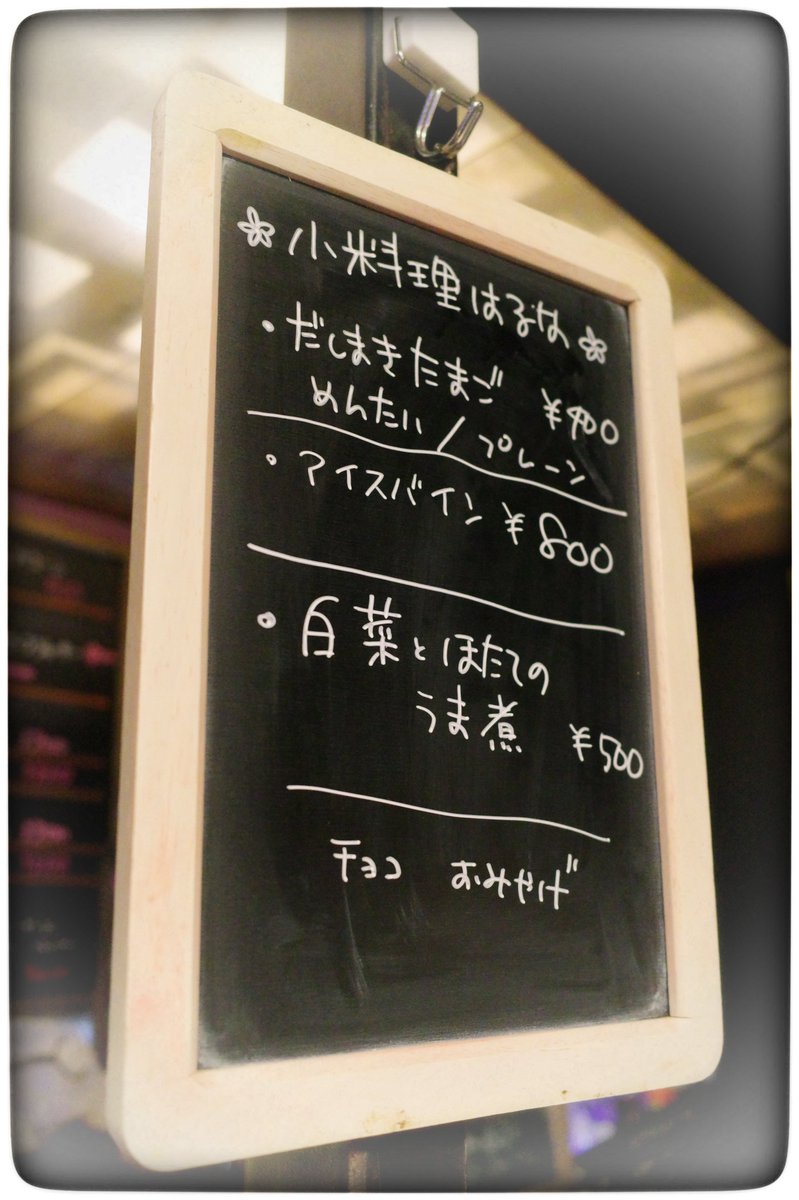 小料理はるな
・だしまきたまご ¥400
めんたい/プレーン
・アイスバイン ¥800
・白菜とほたての
うま煮 ¥500
チョコ おみやげ